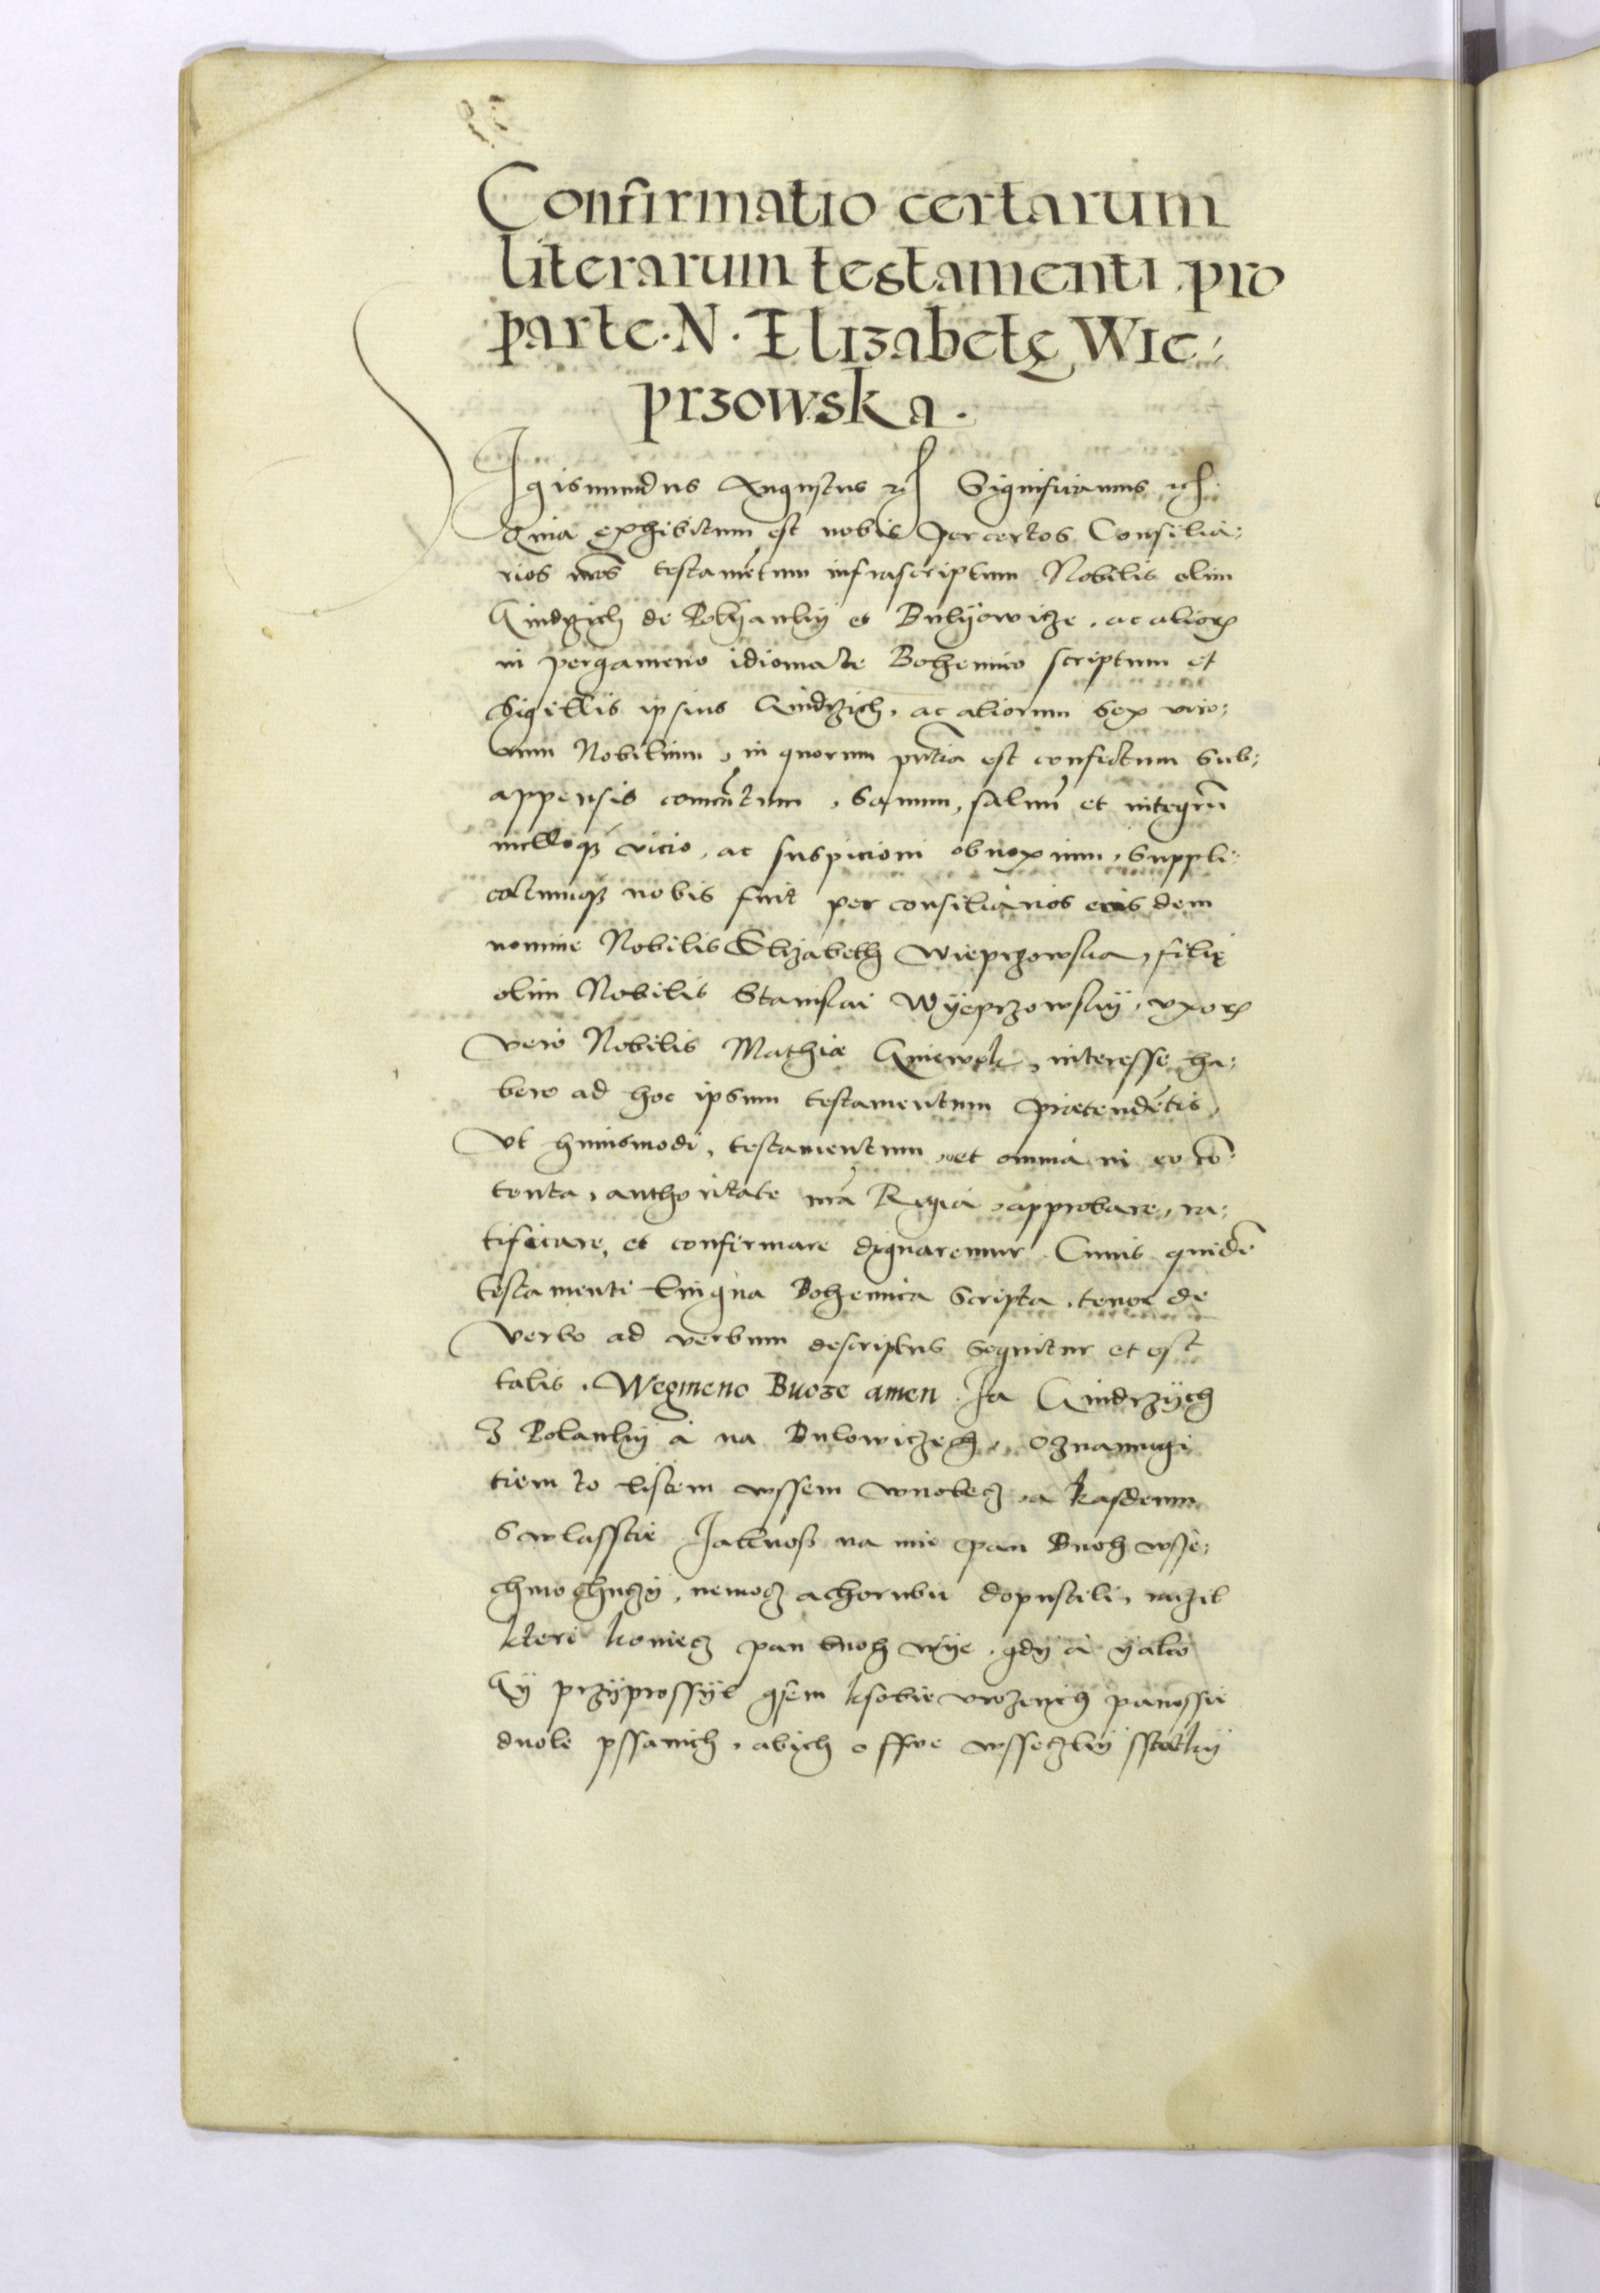 Confirmatio certarum
literarum testamenti pro
parte · N · Elizabetę Wie:
przowska ·
Sigismundus Augustus etc Significamus etc
Quia exhibitum est nobis per certos Consilia:
rios nr̃os testamẽtum infrascriptum Nobilis olim
et Bulyowicze, ac alior
in pergameno idiomate Bohemico scriptum et
Sigillis ipsius Kindrzich, ac aliorum sex viro:
rum Nobilium, in quorum pñtia est confectum sub:
appensis com̃unitum, sanum, saluũ et integrũ
nulloq; vicio, ac suspicioni obnoxium, Suppli:
catumq; nobis fuit per consiliarios eosdem
nomine Nobilis Elizabeth Wieprzowska, filię
olim Nobilis Stanislai Wyeprzowsky, vxor
vero Nobilis Mathiæ interesse ha:
bere ad hoc ipsum testamentum prætendẽtis,
Vt huiusmodi, testamentum et omnia in eo cõ:
tenta, authoritate nrã Regia approbare, ra:
tificare, et confirmare dignaremur. Cuius quidẽ
testamenti lingua Bohemica scripta, tenor de
verbo ad verbum descriptus sequitur et est
talis. Wegmeno Buoze amen. Ja Kindrzych
Z a na Bulowiczech, Oznamugi
tiem to listem wssem wnobecz a kasdemu
Zwlasstie Jakkoß na mie pan Buoh wsse:
chmohuczy, nemocz achorobu dopustili, raczil
kteri koniecz pan buoh wye, gdy a yako
Ky przyprossyl gsem ksobie vrozenich panossi
duole pssanich, abych o sswe wsseczky sstatky